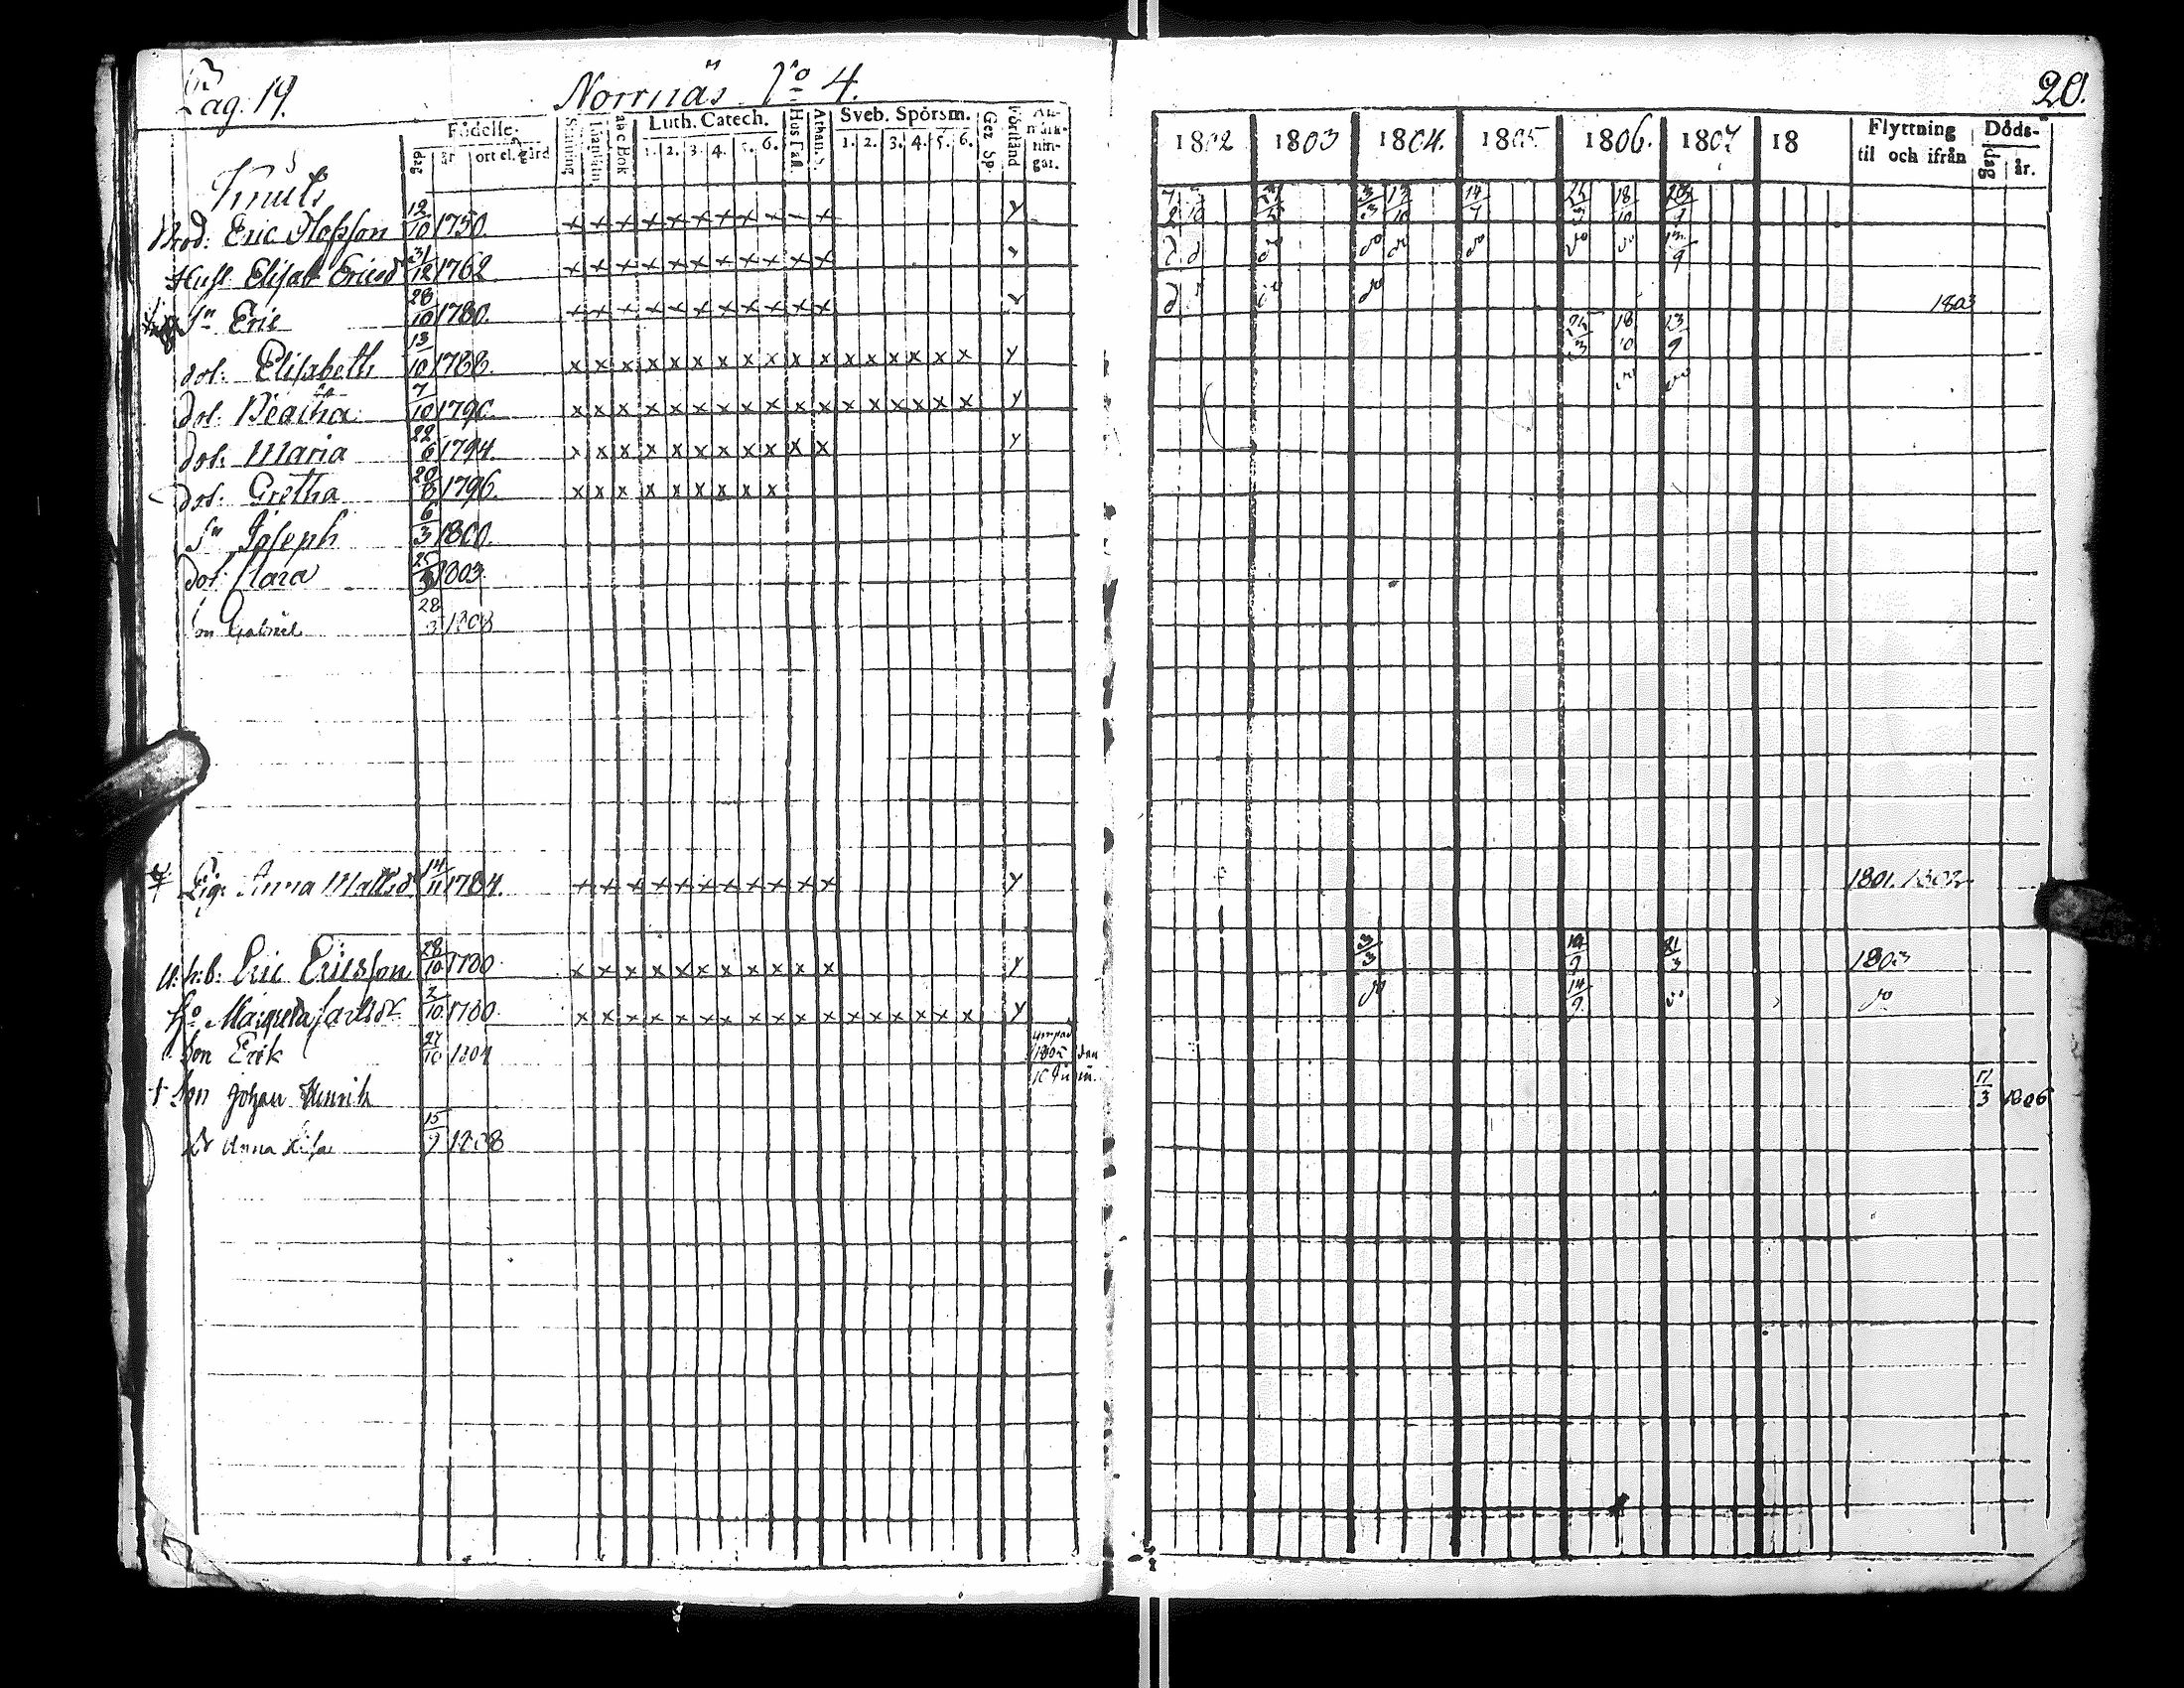 Pag. 19.
Norrnäs No 4.
Födelse-
dag år ort el. gård
Luth. Catech.
1. 2. 3. 4. 5. 6.
Hus Tafl.
Athan. S.
Sveb. Spörsm.
1. 2. 3. 4. 5. 6.
Gez. Sp.
Förstånd
An-
märk-
nin-
gar.
Knuts
Bod: Eric Olofsson 12/10 1750. x x x x x x x x x – x y
Hust. Elisab Ericsdr 31/12 1762. x x x x x x x x x x x y
Sn Eric 28/10 1780. x x x x x x x x x x x y
dot: Elisabeth 13/10 1788. x x x x x x x x x x x x x x x x x y
dot: Beatha 7/10 1790. x x x x x x x x x x x x x x x x x y
dot: Maria 22/6 1794. x x x x x x x x x x x y
dot: Gretha 20/8 1796. x x x x x x x x x
Sn Joseph 6/3 1800.
dot: Clara 25/3 1803.
Son Gabriel 28/3 1808
Pig: Anna Mattsdr 14/11 1784. x x x x x x x x x x x y
Eric Ericsson 28/10 1780 x x x x x x x x x x x y
Ho Margreta Carlsdr 2/10 1780. x x x x x x x x x x x x x x x x x y
Son Erik 27/10 1804
1805 den
10 Juni.
† Son Johan Henrik
Dr Anna Lisa 15/9 1808
20.
1802 1803 1804. 1805 1806. 1807 18
Flyttning
til och ifrån
Döds-
dag år.
3/3 13/10 14/7 18/10
1803
18/10 23/9
1801. 1802
3/3 14/9 21/3 1803
do 14/9 do do
11/3 1806